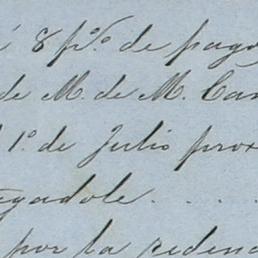 8 p% de pago
de M. de M. Can
1º de Julio prox
gadole . . . .
por la redenc